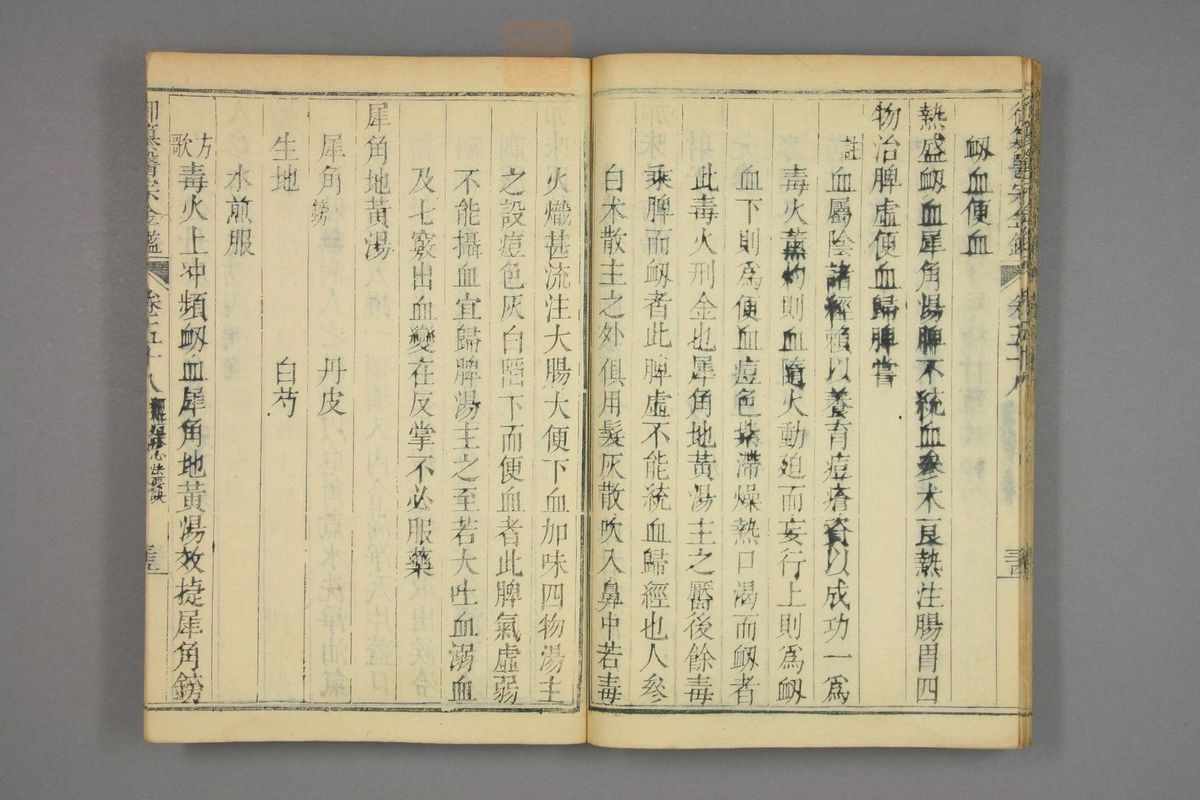 衂血便血
熱盛衂血犀角湯脾不統血參术良熱注腸胃四
物治脾虛便血歸脾嘗
註血屬陰諸經賴以養育痘瘡資以成功一爲
毒火薰灼則血隨火動迫而妄行上則爲衂
血下則爲便血痘色紫滯燥熱口渴而衂者
此毒火刑金也犀角地黃湯主之靨後餘毒
乘脾而衂者此脾虛不能統血歸經也人參
白术散主之外俱用髮灰散吹入鼻中若毒
火熾甚流注大腸大便下血加味四物湯主
之設痘色灰白陷下而便血者此脾氣虛弱
不能攝血宜歸脾湯主之至若大吐血溺血
及七竅出血變在反掌不必服藥
犀角地黃湯
犀角鎊 丹皮
生地 白芍
水煎服
方歌 毒火上冲頻衂血犀角地黃湯效捷犀角鎊
御纂醫宗金鑑 卷五十八